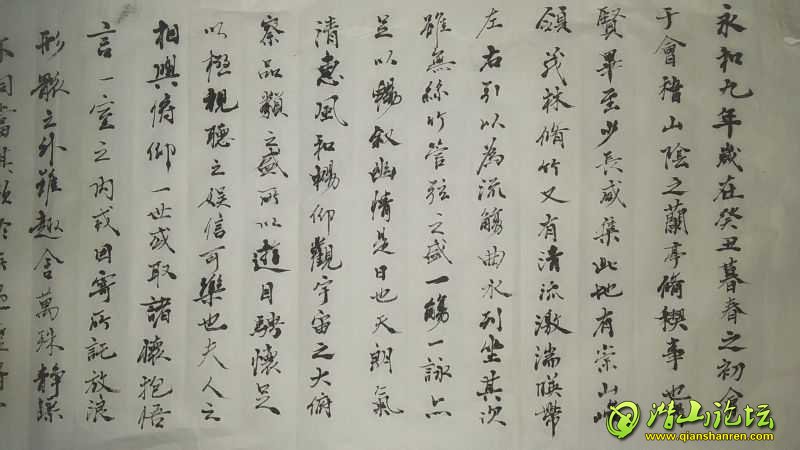 永和九年歲在癸丑暮春之初會
于會稽山陰之蘭亭脩稧事也
賢畢至少長咸集此地有崇山峻
領茂林脩竹又有清流激湍暎帶
左右引以為流觴曲水列坐其次
雖無絲竹管弦之盛一觴一詠亦
足以暢敘幽情是日也天朗氣
清惠風和暢仰觀宇宙之大俯
察品類之盛所以遊目騁懷足
以極視聽之娛信可樂也夫人之
相與俯仰一世或取諸懷抱悟
言一室之內或因寄所託放浪
形骸之外雖趣舍萬殊靜躁
不同當其欣
潜山论坛
www.qianshanren.com